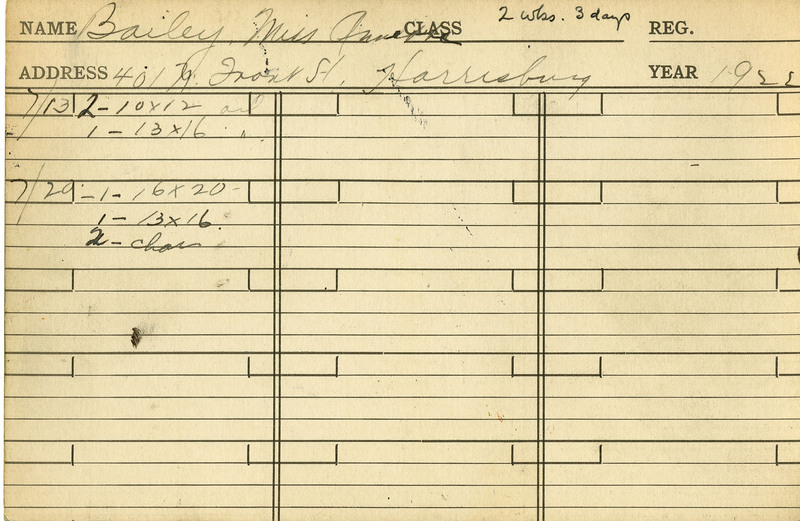 NAME Bailey, Miss Annette CLASS 2 wks. 3 days REG.
ADDRESS 401 N. Front St, Harrisburg YEAR 1922
7/13 2 - 10x12 oil
1 - 13x16 "
7/29 - 1 - 16x20 -
1 - 13x16
2 - char